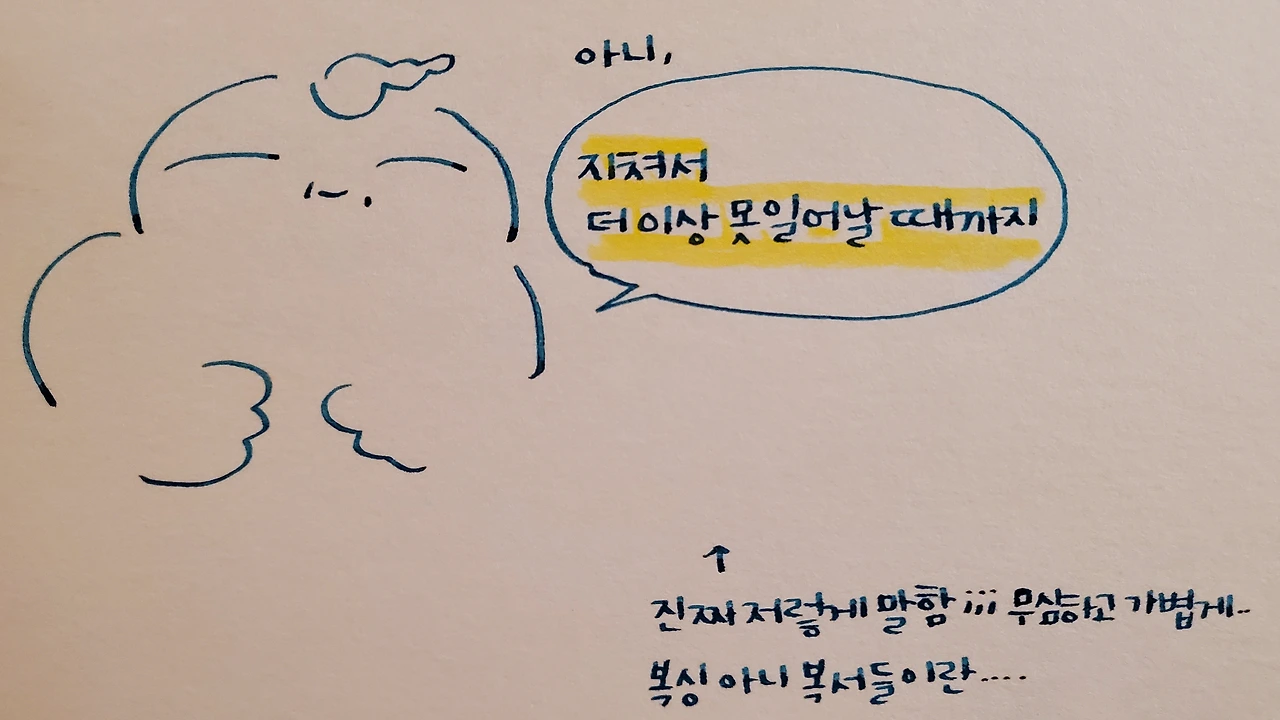 아니,
지쳐서
더 이상 못 일어날 때까지
↑
진짜 저렇게 말함 ;;; 무심하고 가볍게..
복싱 아니 복서들이란....